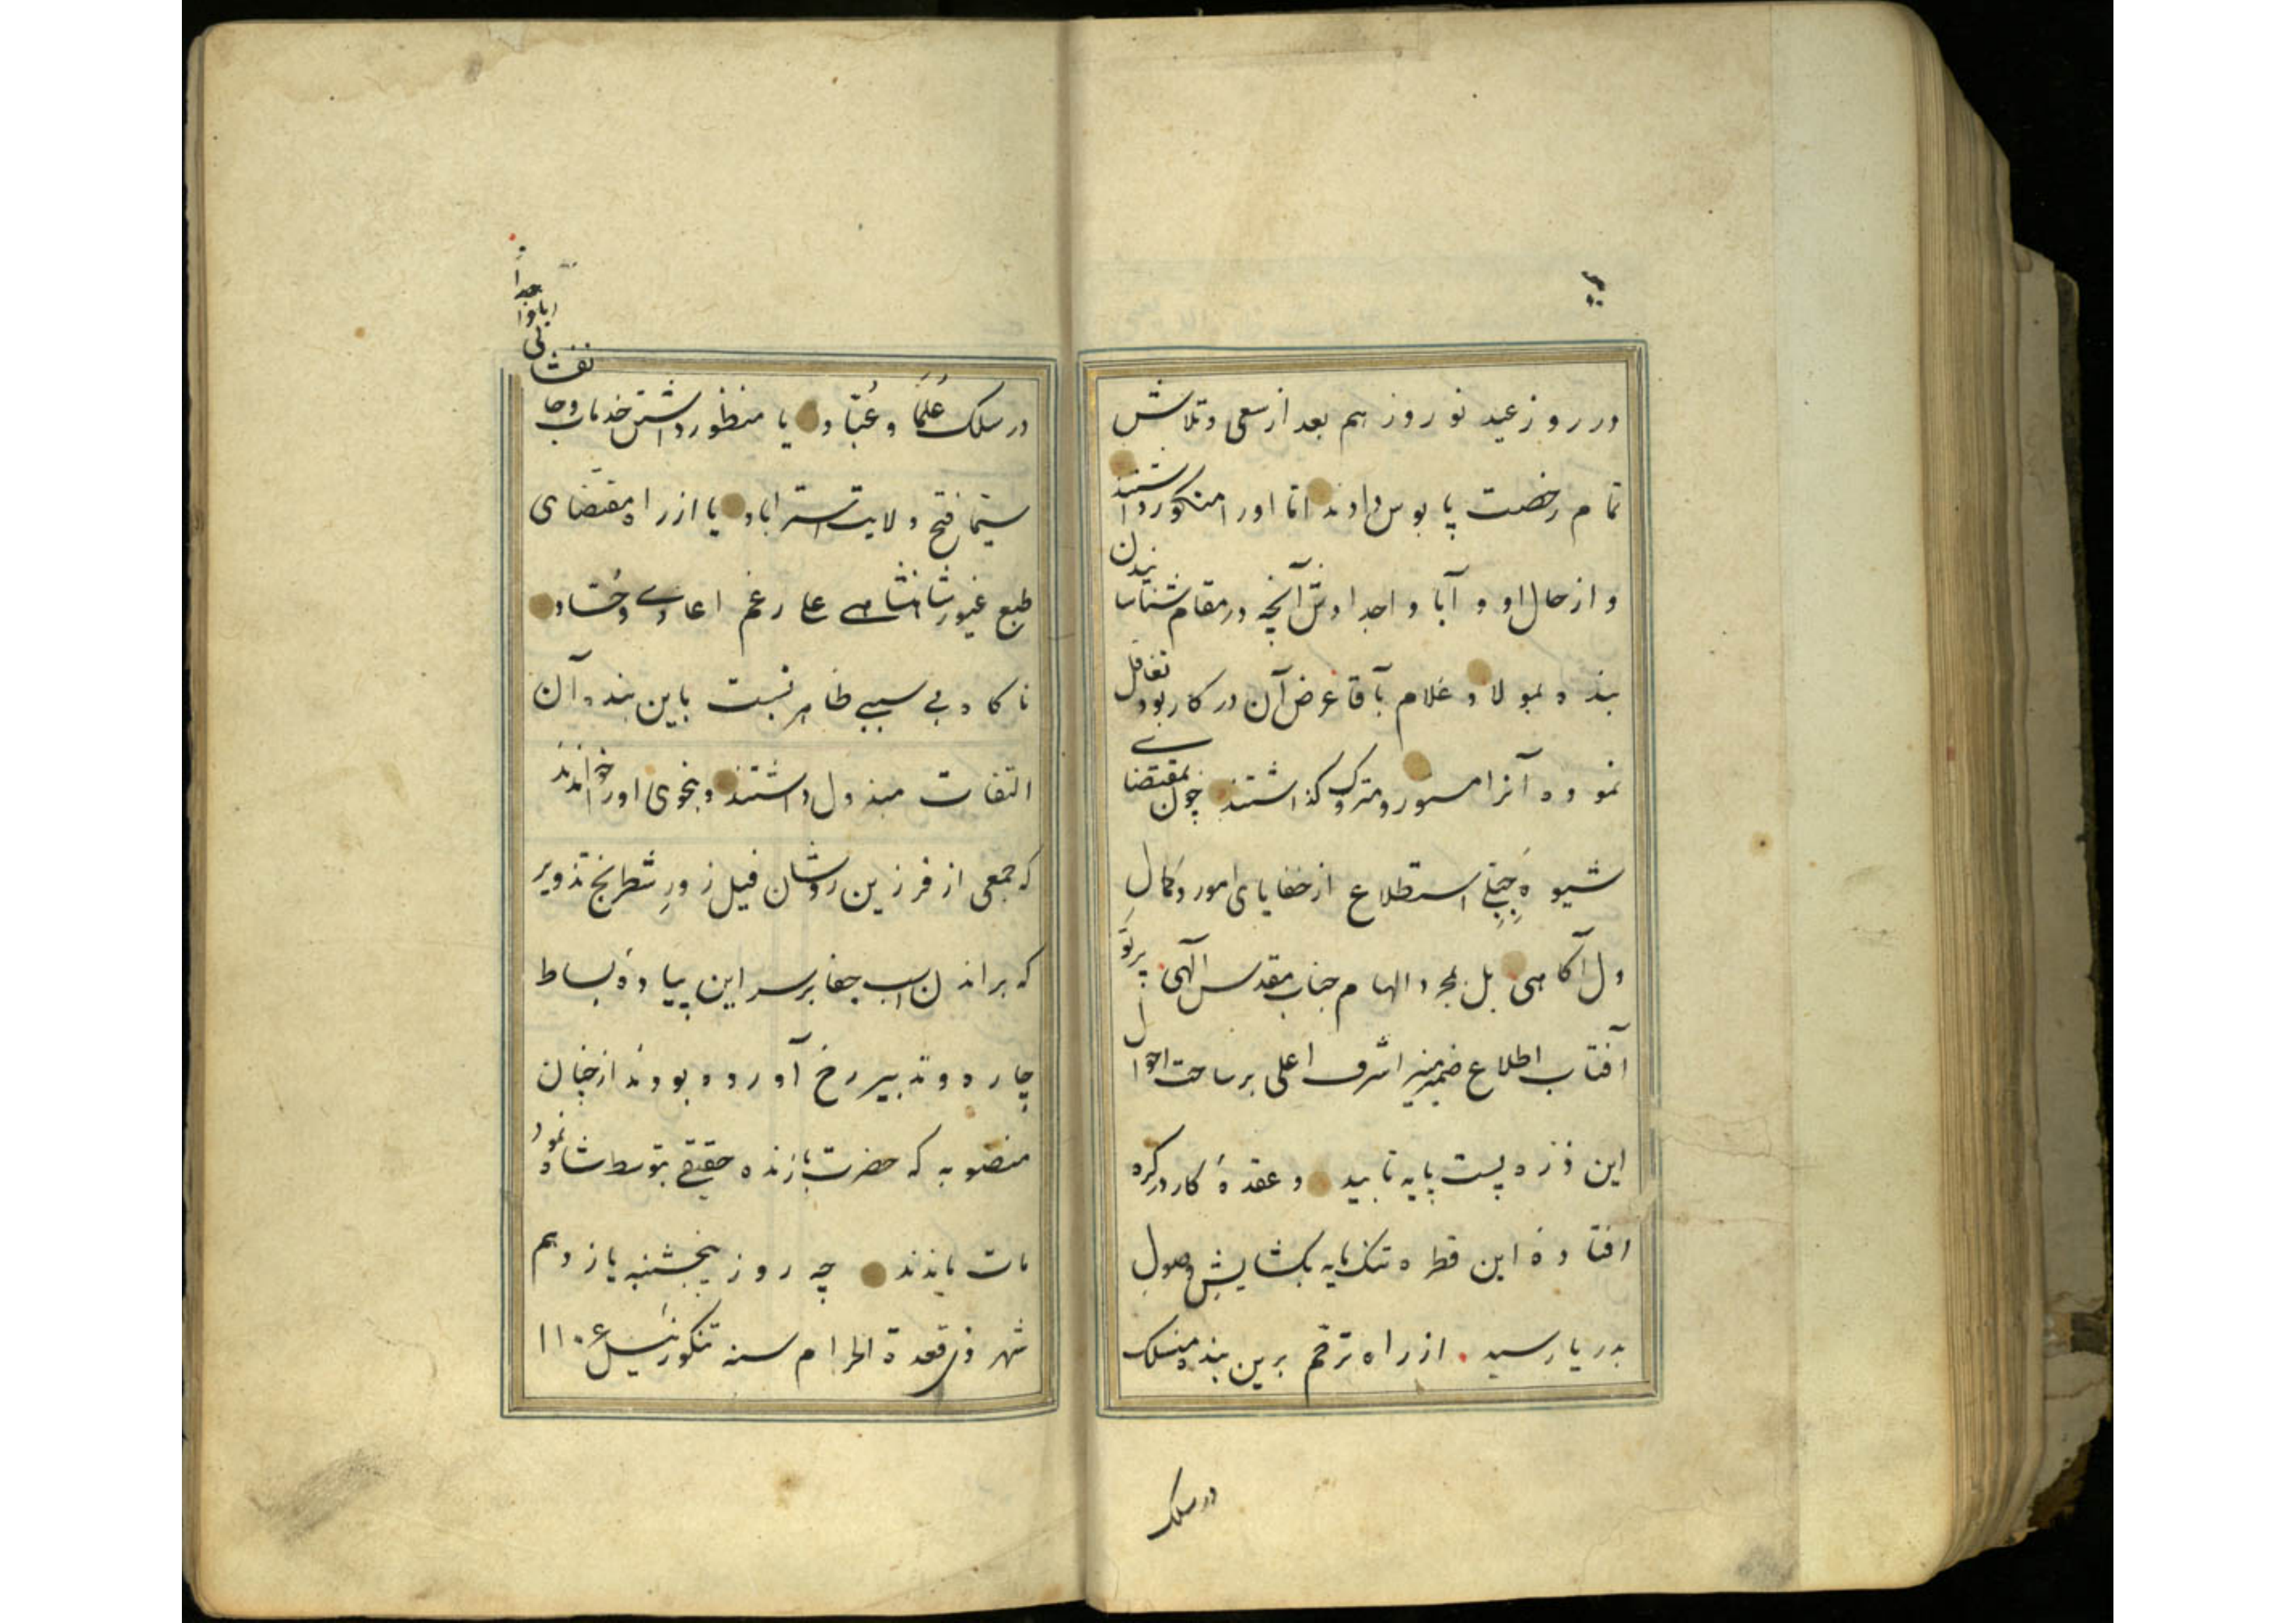 در روز عید نوروز هم بعد از سعی و تلاش
تمام رخصت پابوس دادند اما او را منکور داشتند
و از حال او و آبا و اجدادش آنچه در مقام شناسانیدن
بنده بمولا و غلام بآقا عرض آن در کار بود تغافل
نموده آنرا مستور و متروک گذاشتند چون بمقتضای
شیوه جبلی استطلاع از خفایای امور و کمال
دل آگاهی بل بمجرد الهام جناب مقدس الهی پرتو
آفتاب اطلاع ضمیر منیر اشرف اعلی بر ساحت احوال
این ذره پست پایه تابید و عقدهٔ کار در گره
افتادهٔ این قطره تنک مایه بگشایش وصول
بدریا رسید از راه ترحم برین بنده منسلک
در سلک
در سلک علما و عباد یا منظور داشتن خدمات و جانفشانی
آبا و اجداد
سیما فتح ولایت استراباد یا از راه مقتضای
طبع غیور شاهنشاهی علی رغم اعادی و حساد
ناگاه بی سببی ظاهر نسبت باین بنده آن
التفات مبذول داشتند و بنحوی او را خواندند
که جمعی از فرزین روشان فیل زور شطرنج تذویر
که براندن اسب جفا بر سر این پیادهٔ بساط
چاره و تدبیر رخ آورده بودند از چنان
منصوبه که حضرت بازنده حقیقی بتوسط شاه نمود
مات ماندند چه روز پنجشنبه یازدهم
شهر ذی قعدة الحرام سنه تنکوزئیل ۱۱۰۶